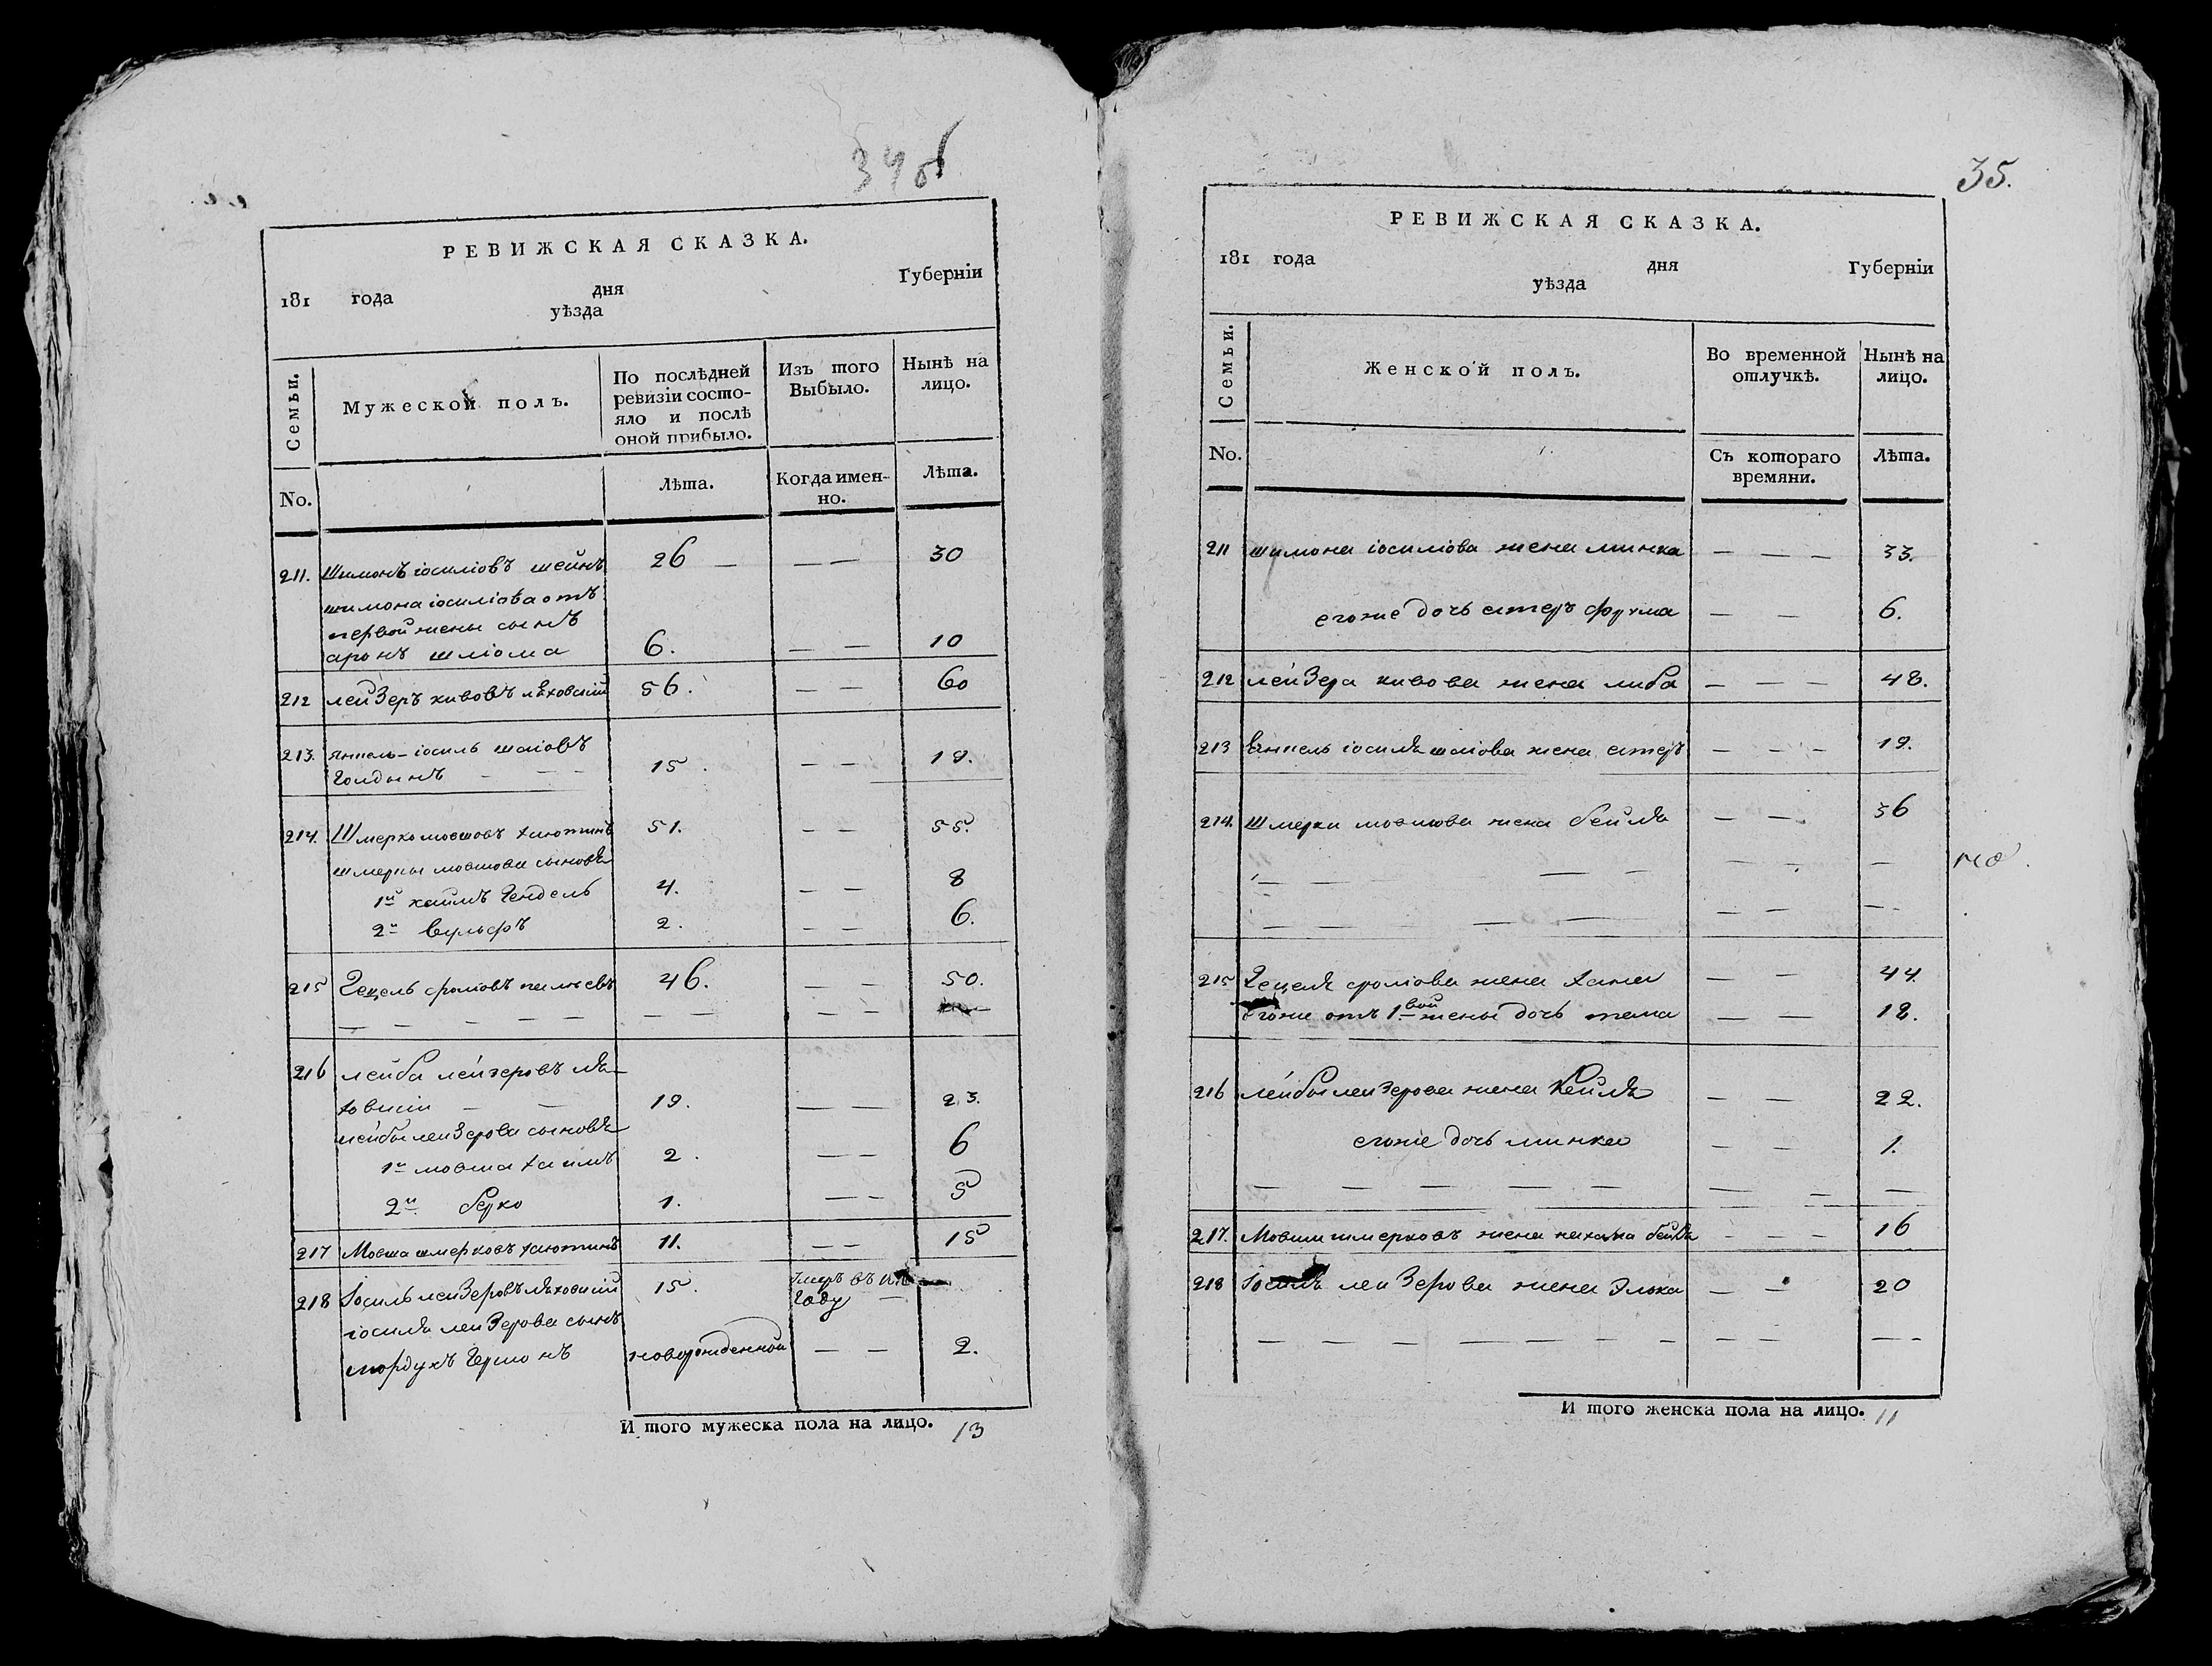 34об
РЕВИЖСКАЯ СКАЗКА.
181 года дня Губерніи
уѣзда
Семьи.
Мужеской полъ.
По послѣдней ревизіи состо-
яло и послѣ
оной прибыло.
Изъ того Выбыло.
Нынѣ на лицо.
No.
Лѣта.
Когда имен-
но.
Лѣта.
211. Шимонъ іосиліовъ шейнъ 26 — — — 30
шимона іосиліова отъ
первой жены сынъ
аронъ шліома 6. — — 10
212 лейзеръ кивовъ ляховскій 56. — — 60
213. янкель-іосиль шліовъ
Голдынъ — — — 15. — — 19.
214. Шмерко мовшовъ хаютинъ 51. — — 55.
шмерки мовшова сыновя
1й хаимъ Гендель 4. — — 8
2й вульфъ 2. — — 6.
215 Гецель сроліовъ 46. — — 50.
— — — — — — — — —
216 лейба лейзеровъ ля-
ховскій — — 19. — — 23.
лейбы лейзерова сыновя
1й мовша хаимъ 2. — — 6
2й берко 1. — — 5
217 Мовша шмерковъ хаютинъ 11. — — 15
218 Іосиль лейзеровъ ляховскій 15. умеръ въ
Году —
іосиля лейзерова сынъ
мордухъ Гершонъ новорожденной — — 2.
И того мужеска пола на лицо. 13
35.
РЕВИЖСКАЯ СКАЗКА.
181 года дня Губерніи
уѣзда
Семьи.
Женской полъ.
Во временной отлучкѣ.
Нынѣ на лицо.
No.
Съ котораго времяни.
Лѣта.
211 шимона іосиліова жена минка — — — 33.
егоже дочь естеръ фрума — — 6.
212 лейзера кивова жена либа — — — 48.
213 янкель іосиля шліова жена естеръ — — — 19.
214. Шмерки мовшова жена бейля — — 36
— — — — — — —
— — — — — — —
215 Гецеля сроліова жена хана — — 44.
егоже отъ 1вой жены дочь тема — — 18.
216 лейбы лейзерова жена Кейля — — 22.
егоже дочь минка — — 1.
— — — — — — — —
217. Мовши шмерковъ жена нахама бейля — — — 16
218 Іосиля лейзерова жена Элька — — 20
— — — — — — — — — — —
И того женска пола на лицо. 11